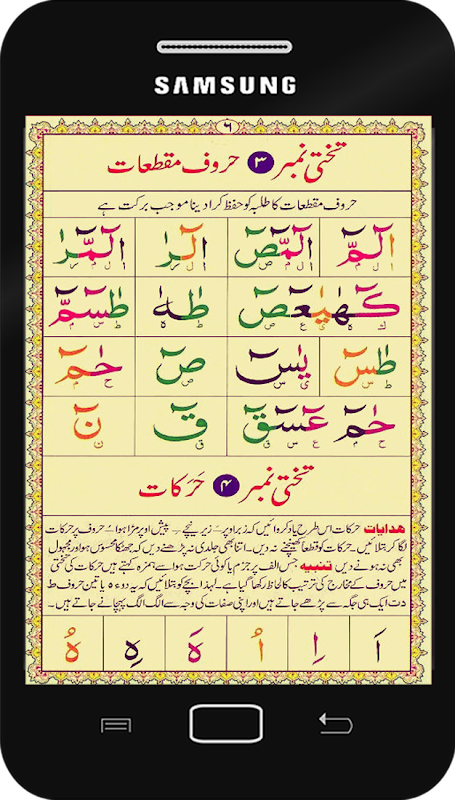 SAMSUNG
٦
تختی نمبر ۳ حروف مقطعات
حروف مقطعات کا طلبہ کو حفظ کرا دینا موجب برکت ہے
الٓمّٓ الٓمّٓصٓ الٓرٰ الٓمّٓرٰ
كٓهٰيٰعٓصٓ طٰهٰ طٰسٓمّٓ
طٰسٓ يٰسٓ صٓ حٰمٓ
حٰمٓ عٓسٓقٓ قٓ نٓ
تختی نمبر ۴ حَرَکات
ہدایات حرکات اس طرح یاد کروائیں کہ زبر اوپر ـَ زیر نیچے ـِ پیش اوپر مڑا ہوا ـُ حروف پر حرکات
لگا کر بتلائیں۔ حرکات کو قطعاً کھینچنے نہ دیں۔ اتنا بھی جلدی نہ پڑھنے دیں کہ جھٹکا محسوس ہو اور مجہول
بھی نہ ہونے دیں تنبیہ جس الف پر جزم یا کوئی حرکت ہو اسے ہمزہ کہتے ہیں حرکات کی تختی
میں حروف کے مخارج کی ترتیب کا لحاظ رکھا گیا ہے۔ لہٰذا بچے کو بتلائیں کہ یہ دو ہ یا تین حروف ط
د ت ایک ہی جگہ سے پڑھے جاتے ہیں اور اپنی صفات کی وجہ سے الگ الگ پہچانے جاتے ہیں۔
اَ اِ اُ هَ هِ هُ